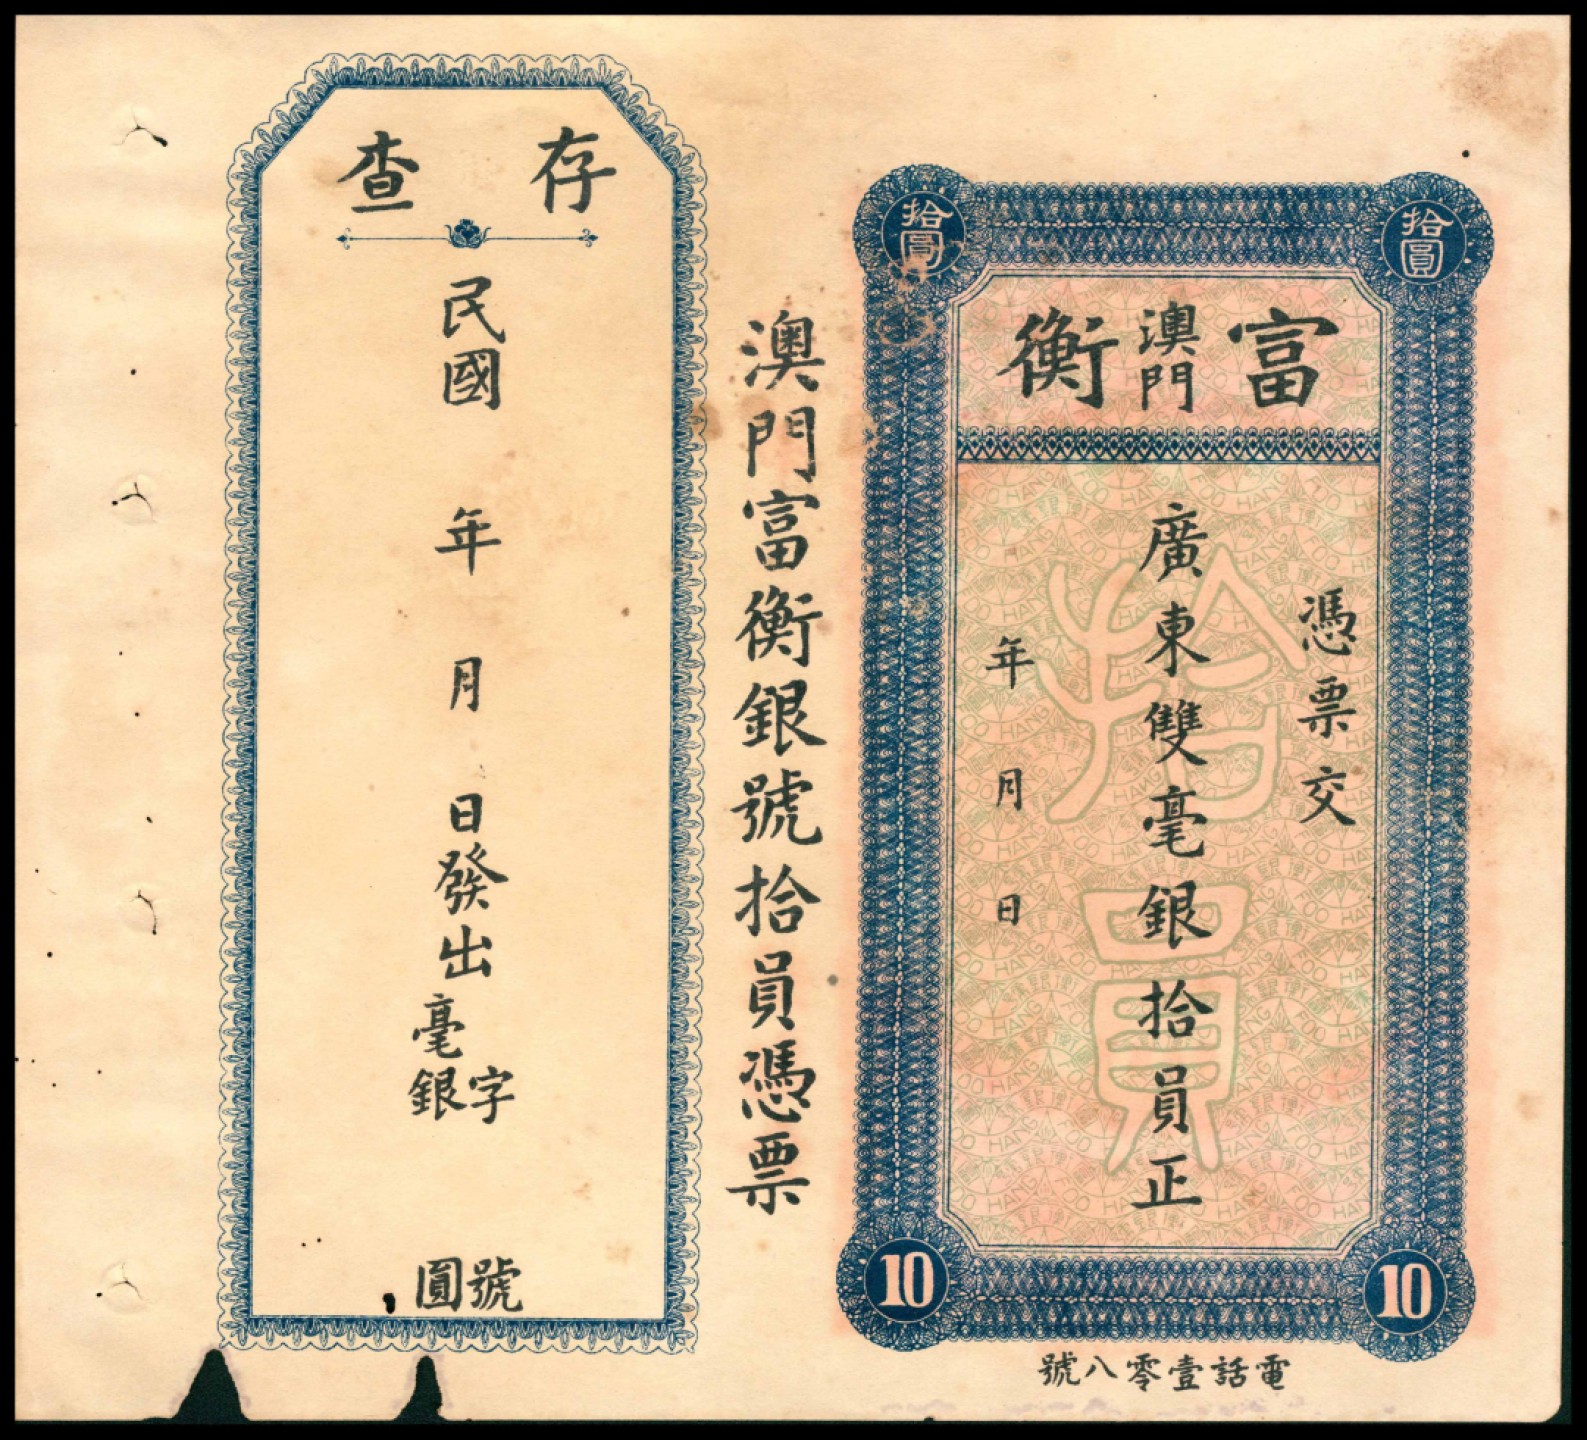 拾圓
拾圓
富澳門衡
憑票交
廣東雙毫銀拾員正
年月日
拾員
10
10
電話壹零八號
澳門富衡銀號拾員憑票
存查
民國年月日發出毫銀字號圓
FOO HANG